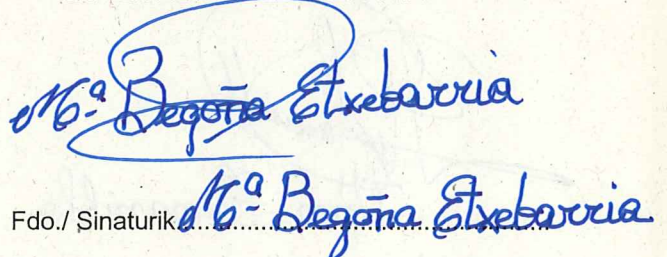 Mª Begoña Etxebarria
Fdo./ Sinaturik Mª Begoña Etxebarria